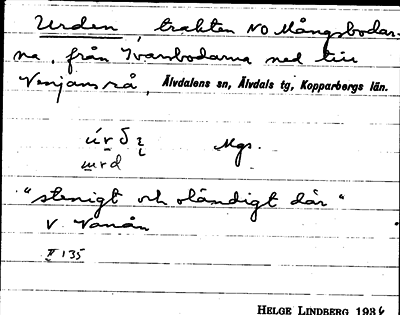 Urden, trakten NO Mångsbodar-
na, från Ivarsbodarna ned till
Venjans så, Älvdalens sn, Älvdals tg, Kopparbergs län.
Mgs.
"stenigt och oländigt där"
V Vanån
II 135
HELGE LINDBERG 1934